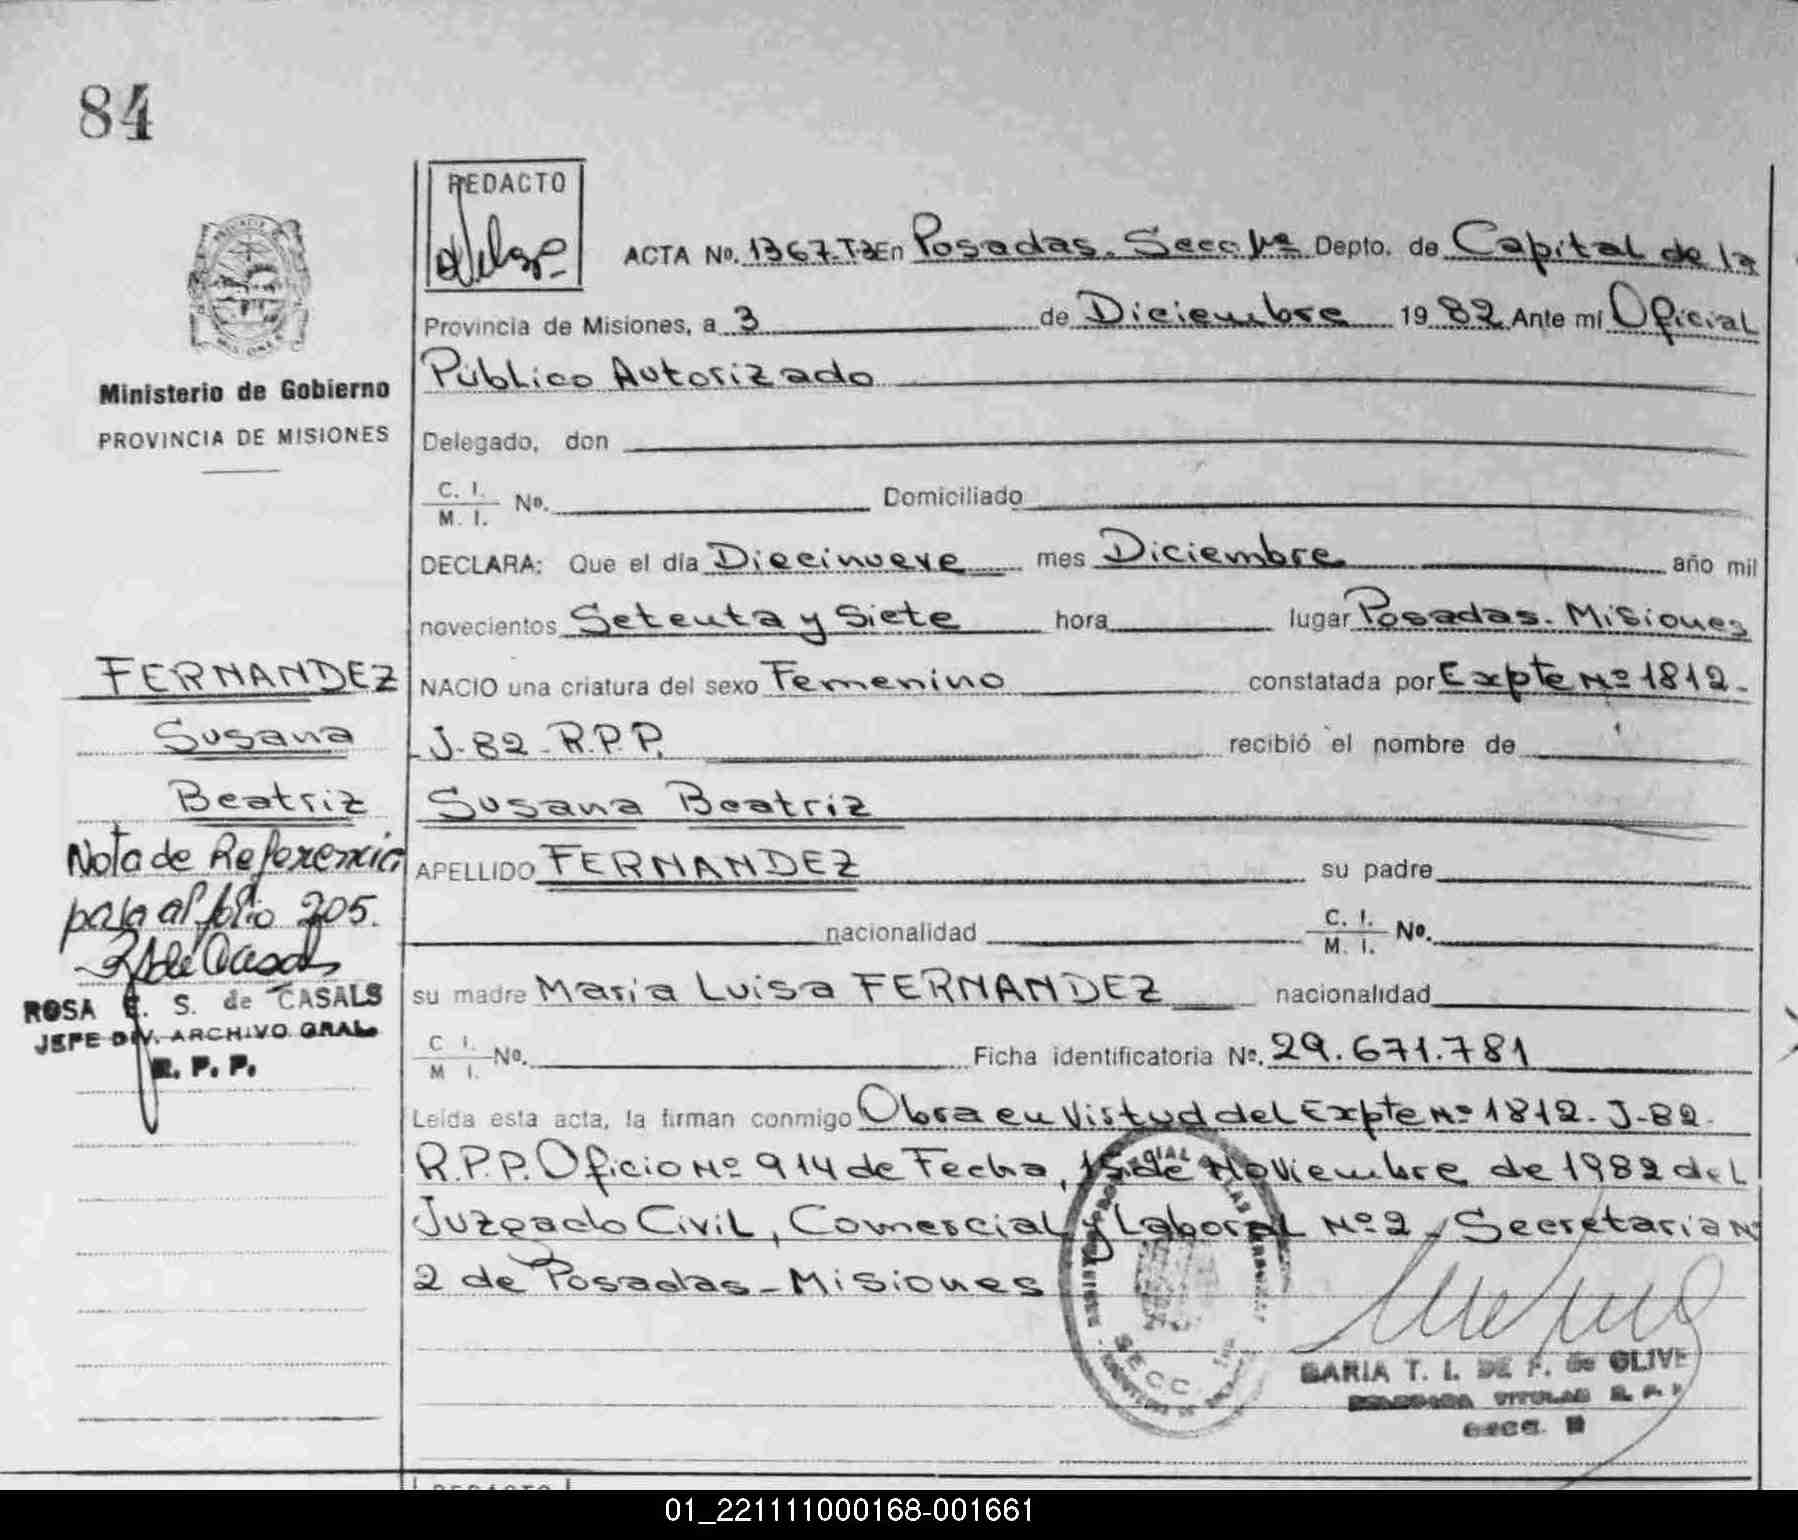 84
REDACTO
ACTA No. 1367-T-3 En Posadas. Secc 1ra Depto. de Capital de la
Provincia de Misiones, a 3 de Diciembre 1982 Ante mí Oficial
Público Autorizado
Ministerio de Gobierno
PROVINCIA DE MISIONES
Delegado, don
C. I.
M. I. No. Domiciliado
DECLARA: Que el día Diecinueve mes Diciembre año mil
novecientos Setenta y Siete hora lugar Posadas. Misiones
FERNANDEZ
Susana
Beatriz
NACIO una criatura del sexo Femenino constatada por Expte Nº 1812-
J-82-R.P.P. recibió el nombre de
Susana Beatriz
Nota de Referencia
para al folio 205.
ROSA E. S. de CASALS
JEFE DIV. ARCHIVO GRAL.
R. P. P.
APELLIDO FERNANDEZ su padre
nacionalidad C. I.
M. I. No.
su madre Maria Luisa FERNANDEZ nacionalidad
C I.
M I. No. Ficha identificatoria Nº. 29.671.781
Leída esta acta, la firman conmigo Obra en Virtud del Expte Nº 1812-J-82-
R.P.P. Oficio Nº 914 de Fecha, 15 de Noviembre de 1982 del
Juzgado Civil, Comercial y Laboral Nº 2, Secretaria Nº
2 de Posadas-Misiones
SECC
MARIA T. I. DE F. de OLIVE
DELEGADA TITULAR R. P. P
SECC.
REDACTO
01_221111000168-001661